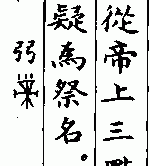 從帝上三
疑為祭名。
弜